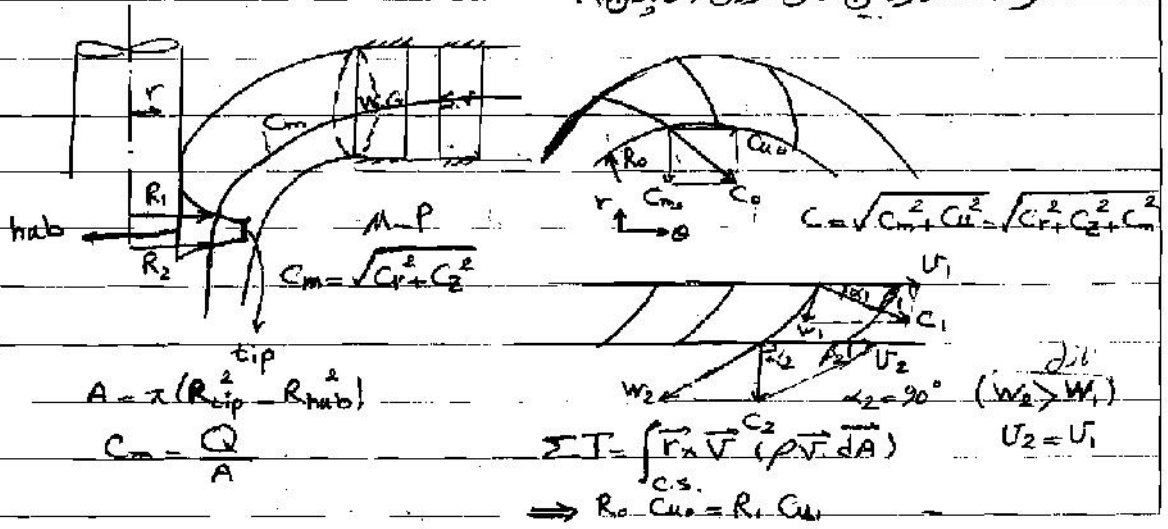 r
W.G
S.V
Cm
R₁
hub
R₂
M-P
Cm = √Cr² + Cz²
tip
A = π(R²tip - R²hub)
Cm = Q/A
R₀
Cu₀
Cm₀
C₀
r
θ
C = √Cm² + Cu² = √Cr² + Cz² + Cm²
U₁
α₁
C₁
W₁
α₂
β₂
U₂
W₂
C₂
α₂ = 90°
(W₂ > W₁)
U₂ = U₁
ΣT = ∫c.s. r⃗ × V⃗ (ρV⃗.dA⃗)
⟹ R₀ Cu₀ = R₁ Cu₁